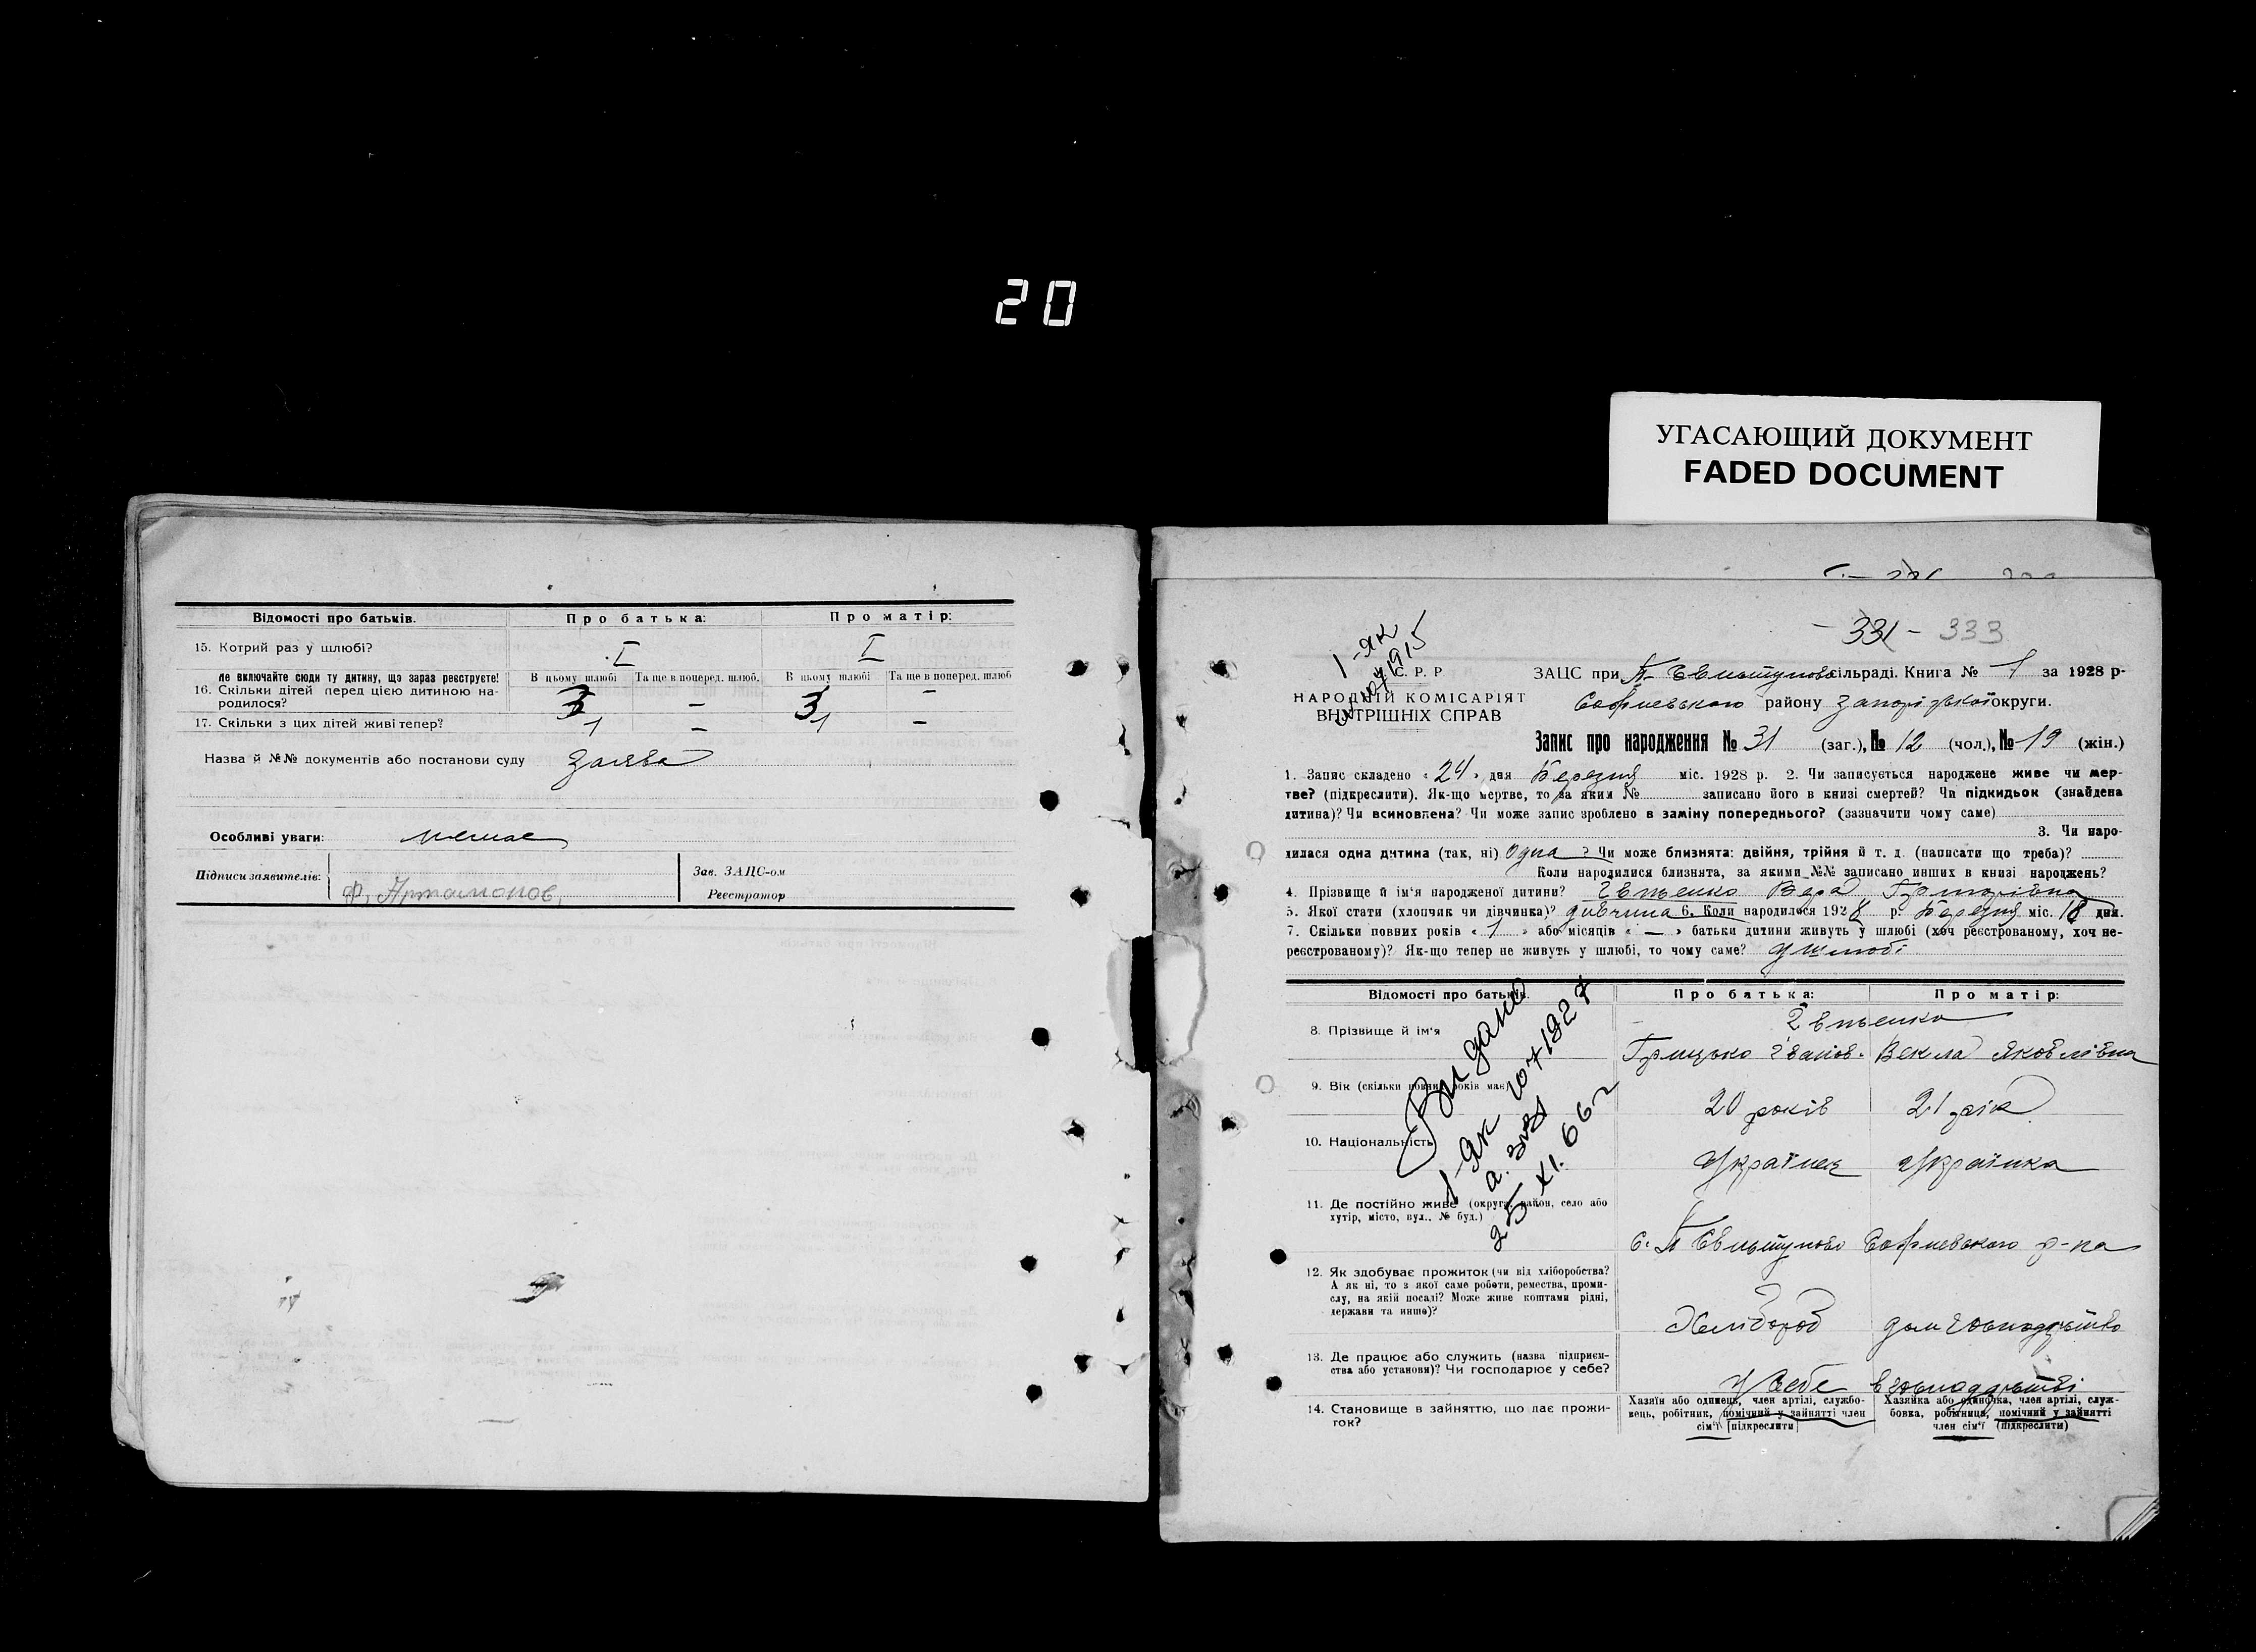 20
УГАСАЮЩИЙ ДОКУМЕНТ
FADED DOCUMENT
Відомості про батьків. Про батька: Про матір:
15. Котрий раз у шлюбі? I I
Не включайте сюди ту дитину, що зараз реєструєте! В цьому шлюбі Та ще в поперед. шлюб. В цьому шлюбі Та ще в поперед. шлюб
16. Скільки дітей перед цією дитиною на- 3 – 3 –
родилося?
17. Скільки з цих дітей живі тепер? 1 – 1 –
Назва й №№ документів або постанови суду Заява
Особливі уваги: немає
Підписи заявителів: Ф. Артамонов.
Зав. ЗАЦС-ом
Реєстратор
– 331 – 333
1-ЯК
1915
С. Р. Р
НАРОДНІЙ КОМІСАРІЯТ
ВНУТРІШНІХ СПРАВ
ЗАЦС при сільраді. Книга № 1 за 1928 р-
Софиевського району Запорізької округи.
Запис про народження № 31 (заг.), № 12 (чол.), № 19 (жін.)
1. Запис складено « 24 » дня Березня міс. 1928 р. 2. Чи записується народжене живе чи мер-
тве? (підкреслити). Як-що мертве, то за яким № записано його в книзі смертей? Чи підкидьок (знайдена
дитина)? Чи всиновлена? Чи може запис зроблено в заміну попереднього? (зазначити чому саме)
3. Чи наро-
дилася одна дитина (так, ні) Одна ? Чи може близнята: двійня, трійня й т. д. (написати що треба)?
Коли народилися близнята, за якими №№ записано инших в книзі народжень?
4. Прізвище й ім'я народженої дитини? Вера Григорівна
5. Якої стати (хлопчяк чи дівчинка)? дивчина 6. Коли народилося 1928 р. Березня міс. 18 дня.
7. Скільки повних років « 1 » або місяців « – » батьки дитини живуть у шлюбі (хоч реєстрованому, хоч не-
реєстрованому)? Як-що тепер не живуть у шлюбі, то чому саме? У шлюбі
Відомості про батьків. Про батька: Про матір:
8. Прізвище й ім'я
Грицько Іванов. Векла Яковлівна
9. Вік (скільки повних років має)
20 років 21 рік
10. Національність
Українец Українка
11. Де постійно живе (округа, район, село або
хутір, місто, вул., № буд.)
с. Софиевського р-на
12. Як здобуває прожиток (чи від хліборобства?
А як ні, то з якої саме роботи, ремества, проми-
слу, на якій посаді? Може живе коштами рідні,
держави та инше)?
Хлібороб дом господрьство
13. Де працює або служить (назва підприєм-
ства або установи)? Чи господарює у себе?
У Себе в господарьстві
14. Становище в зайняттю, що дає прожи-
ток?
Хазяїн або одинець, член артілі, службо-
вець, робітник, помічний у зайнятті член
сім'ї (підкреслити)
Хазяйка або одиночка, член артілі, служ-
бовка, робітниця, помічний у зайнятті
член сім'ї (підкреслити)
Видано
1-ЯК 1071927
25 XI. 66 г